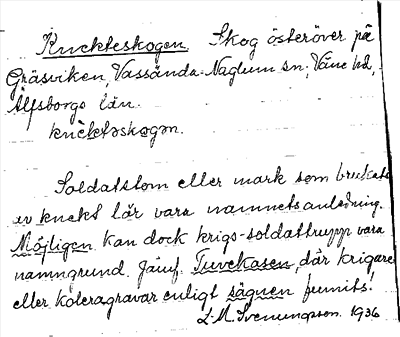 Knekteskogen. Skog österöver på
Gräsviken, Vassända-Naglum sn, Väne hd,
Älfsborgs län.
knèktəskogən.
Soldatstom eller mark som brukats
av knekt lär vara namnets anledning.
Möjligen kan dock krigs-soldattrupp vara
namngrund. Jämf. Tuvekasen, där krigare
eller koleragravar enligt sägnen funnits.
L. M. Svenungsson 1936